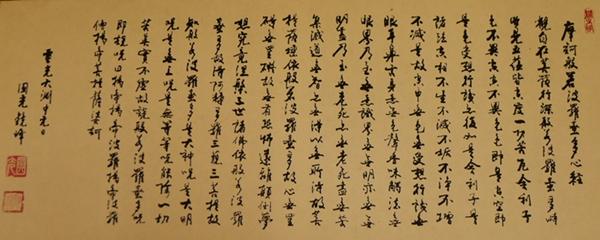 摩訶般若波羅蜜多心經
觀自在菩薩行深般若波羅蜜多時
照見五蘊皆空度一切苦厄舍利子
色不異空空不異色色即是空空即
是色受想行識亦復如是舍利子是
諸法空相不生不滅不垢不淨不增
不減是故空中無色無受想行識無
眼耳鼻舌身意無色聲香味觸法無
眼界乃至無意識界無無明亦無無
明盡乃至無老死亦無老死盡無苦
集滅道無智亦無得以無所得故菩
提薩埵依般若波羅蜜多故心無罣
礙無罣礙故無有恐怖遠離顛倒夢
想究竟涅槃三世諸佛依般若波羅
蜜多故得阿耨多羅三藐三菩提故
知般若波羅蜜多是大神咒是大明
咒是無上咒是無等等咒能除一切
苦真實不虛故說般若波羅蜜多咒
即說咒曰揭帝揭帝波羅揭帝波羅
僧揭帝菩提薩婆訶